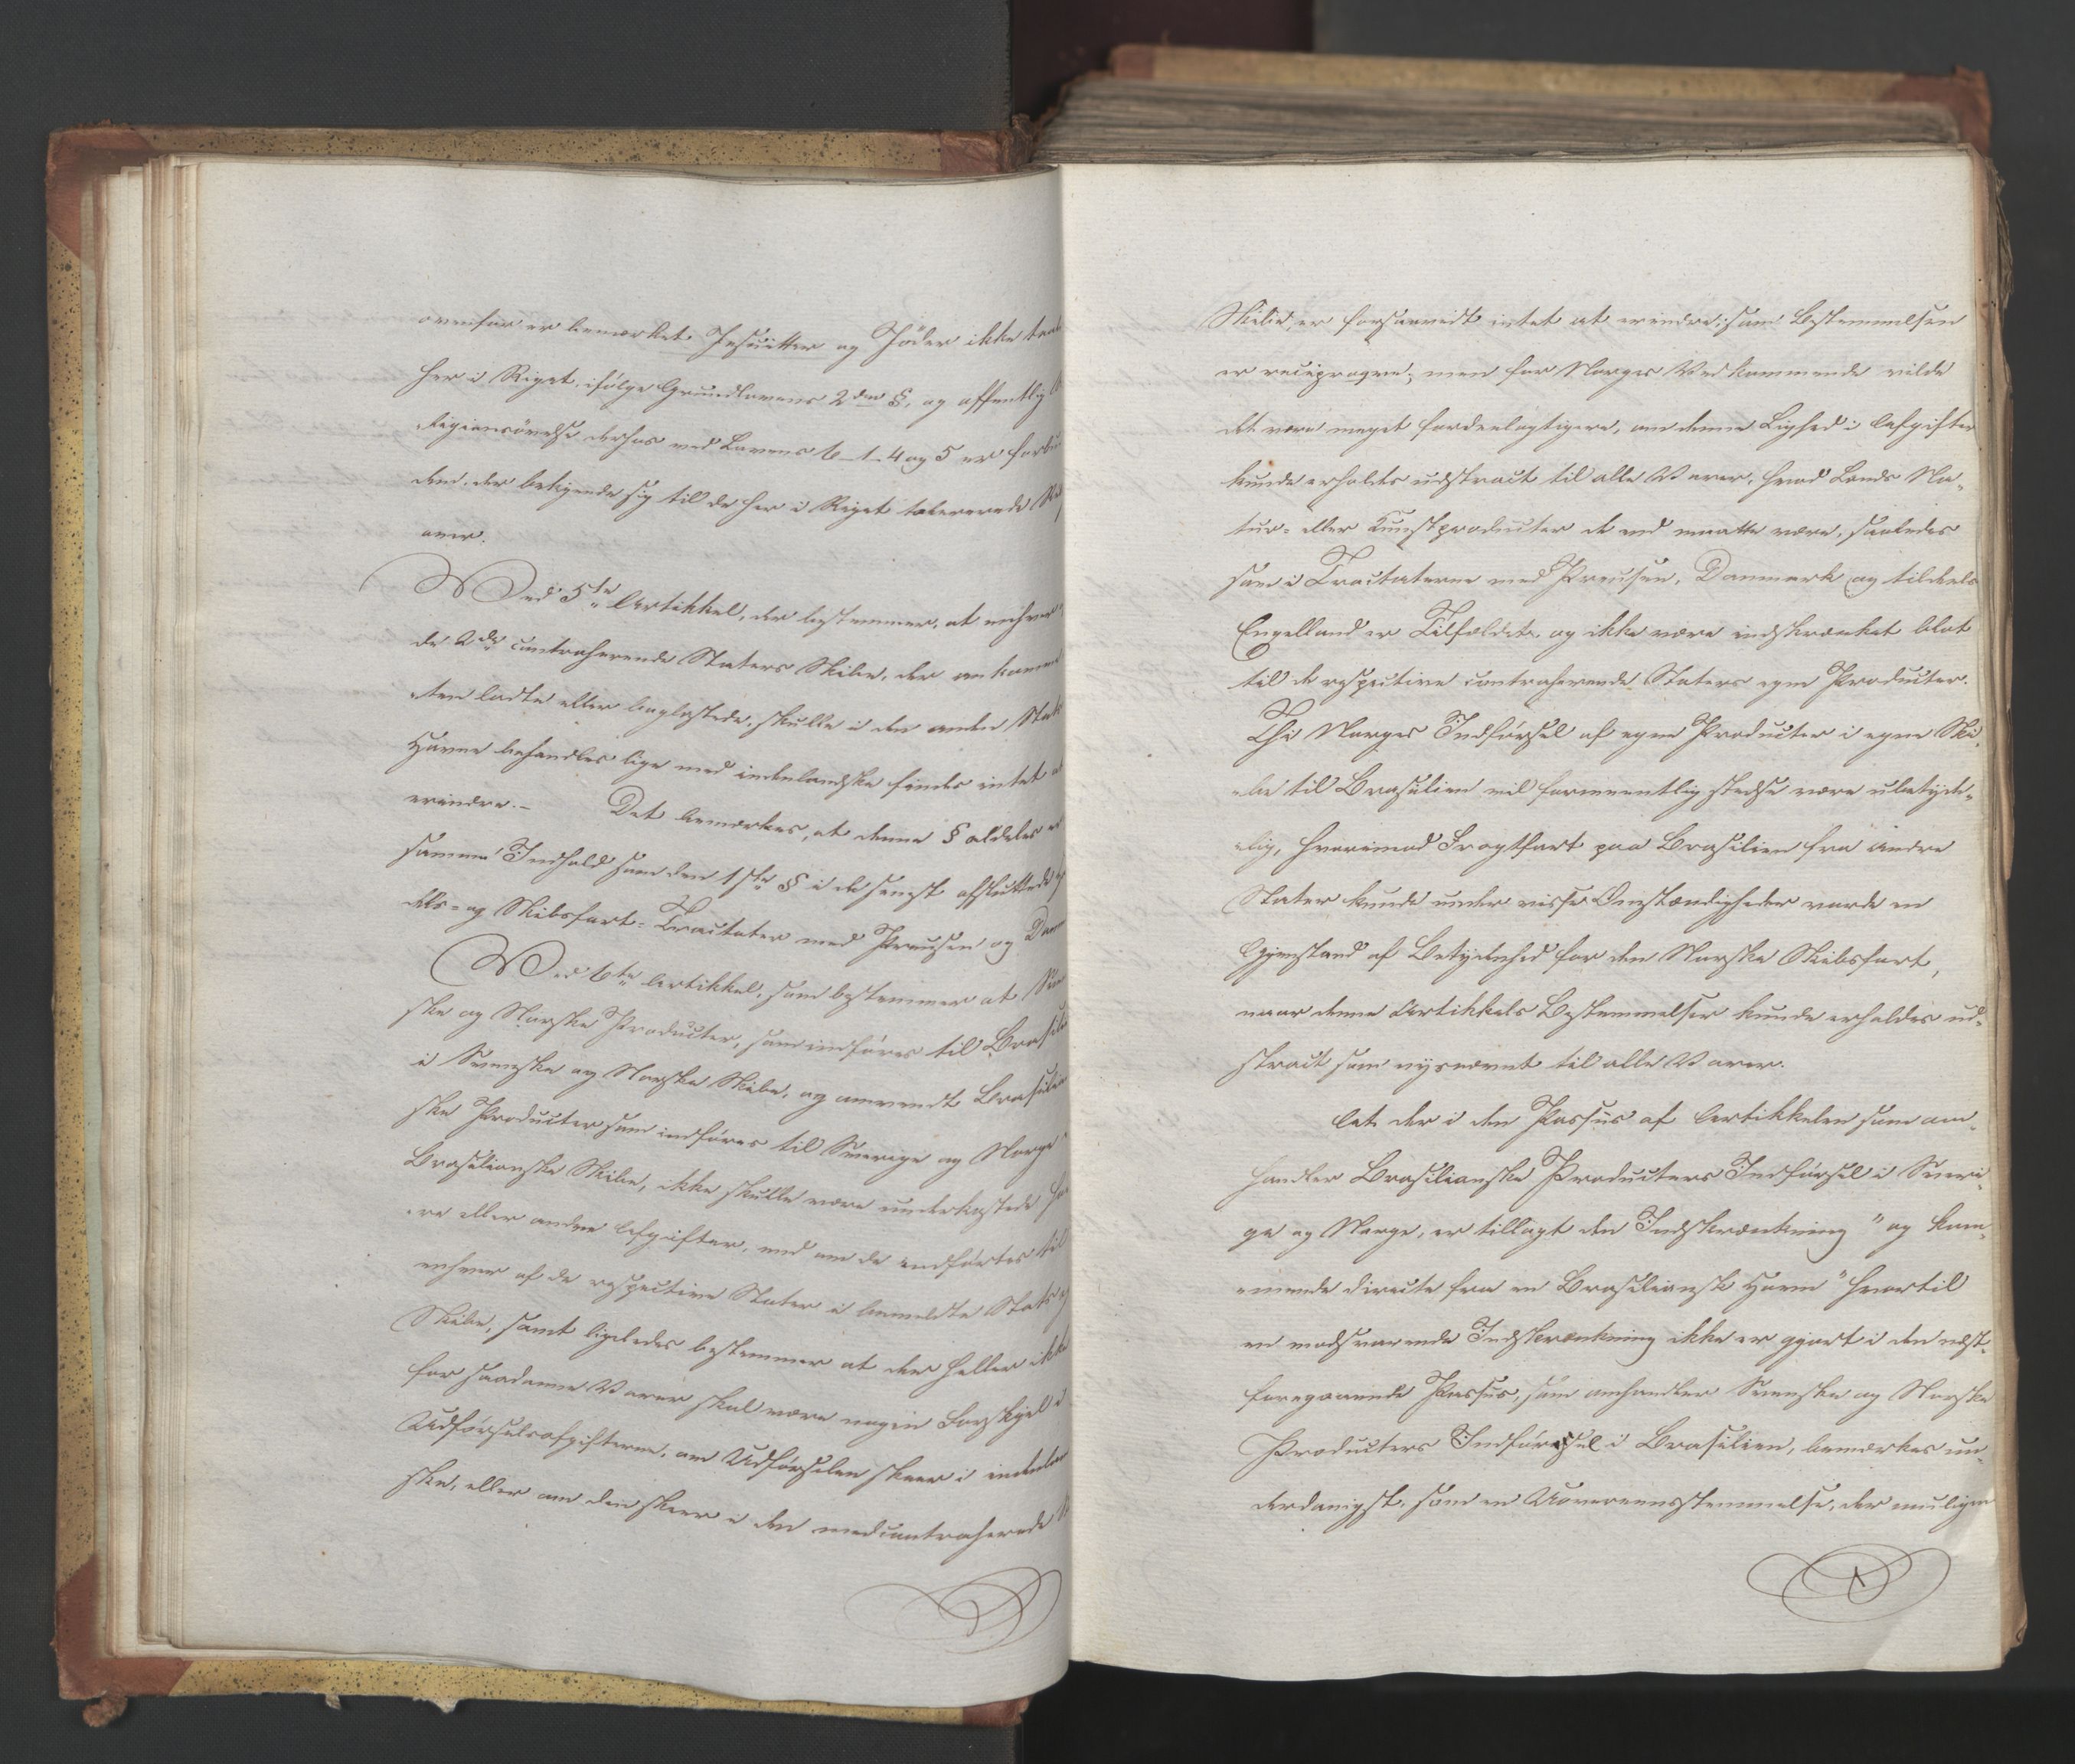 ovenfor er bemærket Jesuitter og Jöder ikke
her i Riget, ifölge Grundlovens 2den §, og offentlig
ligionsövelse derhos ved Lovens 6-1-4 og 5 er
dem, der bekjende sig til de her i Riget tolererede
oner.
Ved 5te Artikkel, der bestemmer, at enhver
de 2de contraherende Staters Skibe, der ankomme
ten ladte eller baglastede, skulle i den anden
Havne behandles lige med indenlandske findes intet at
erindre.- Det bemærkes, at denne § aldeles er
samme Indhold som den 1ste § i de senest afsluttede
dels- og Skibsfart-Tractater med Preusen og
Ved 6te Artikkel, som bestemmer at
ske og Norske Producter, som indföres til
i Svenske og Norske Skibe, og omvendt
ske Producter som indföres til Sverige og Norge
Brasilianske Skibe, ikke skulle være underkastede
ere eller andre Afgifter, end om de indförtes til
enhver af de respective Stater i bemeldte Stats
Skibe, samt ligeledes bestemmer at der heller ikke
for saadanne Varer skal være nogen Forskjel i
Udförselsafgifterne, om Udförselen skeer i
ske, eller om den skeer i den medcontraherende
Skibe, er forsaavidt intet at erindre, som Bestemmelsen
er reciproqve; men for Norges Vedkommende vilde
det være meget fordeelagtigere, om denne Lighed i Afgifter
kunde erholdes udstract til alle Varer, hvad Lands Na-
tur- eller Kunstproducter de end maatte være, saaledes
som i Tractaterne med Preusen, Danmark og tildeels
Engelland er Tilfældet og ikke være indskrænket blot
til de respective contraherende Staters egne Producter.
Thi Norges Indförsel af egne Producter i egne Ski-
be til Brasilien vil formeentlig stedse være ubetyde-
lig, hvorimod Fragtfart paa Brasilien fra andre
Stater kunde under visse Omstændigheder vorde en
Gjenstand af Betydenhed for den Norske Skibsfart,
naar denne Artikkels Bestemmelser kunde erholdes ud-
stract som nysnævnt til alle Varer.
At der i den Passus af Artikkelen som om-
handler Brasilianske Producters Indförsel i Sveri-
ge og Norge, er tillagt den Indskrænkning "og kom-
mende directe fra en Brasiliansk Havn" hvortil
en modsvarende Indskrænkning ikke er gjort i den næst-
foregaaende Passus, som omhandler Svenske og Norske
Producters Indförsel i Brasilien, bemærkes un-
derdanigst, som en Uovereensstemmelse, der muligen